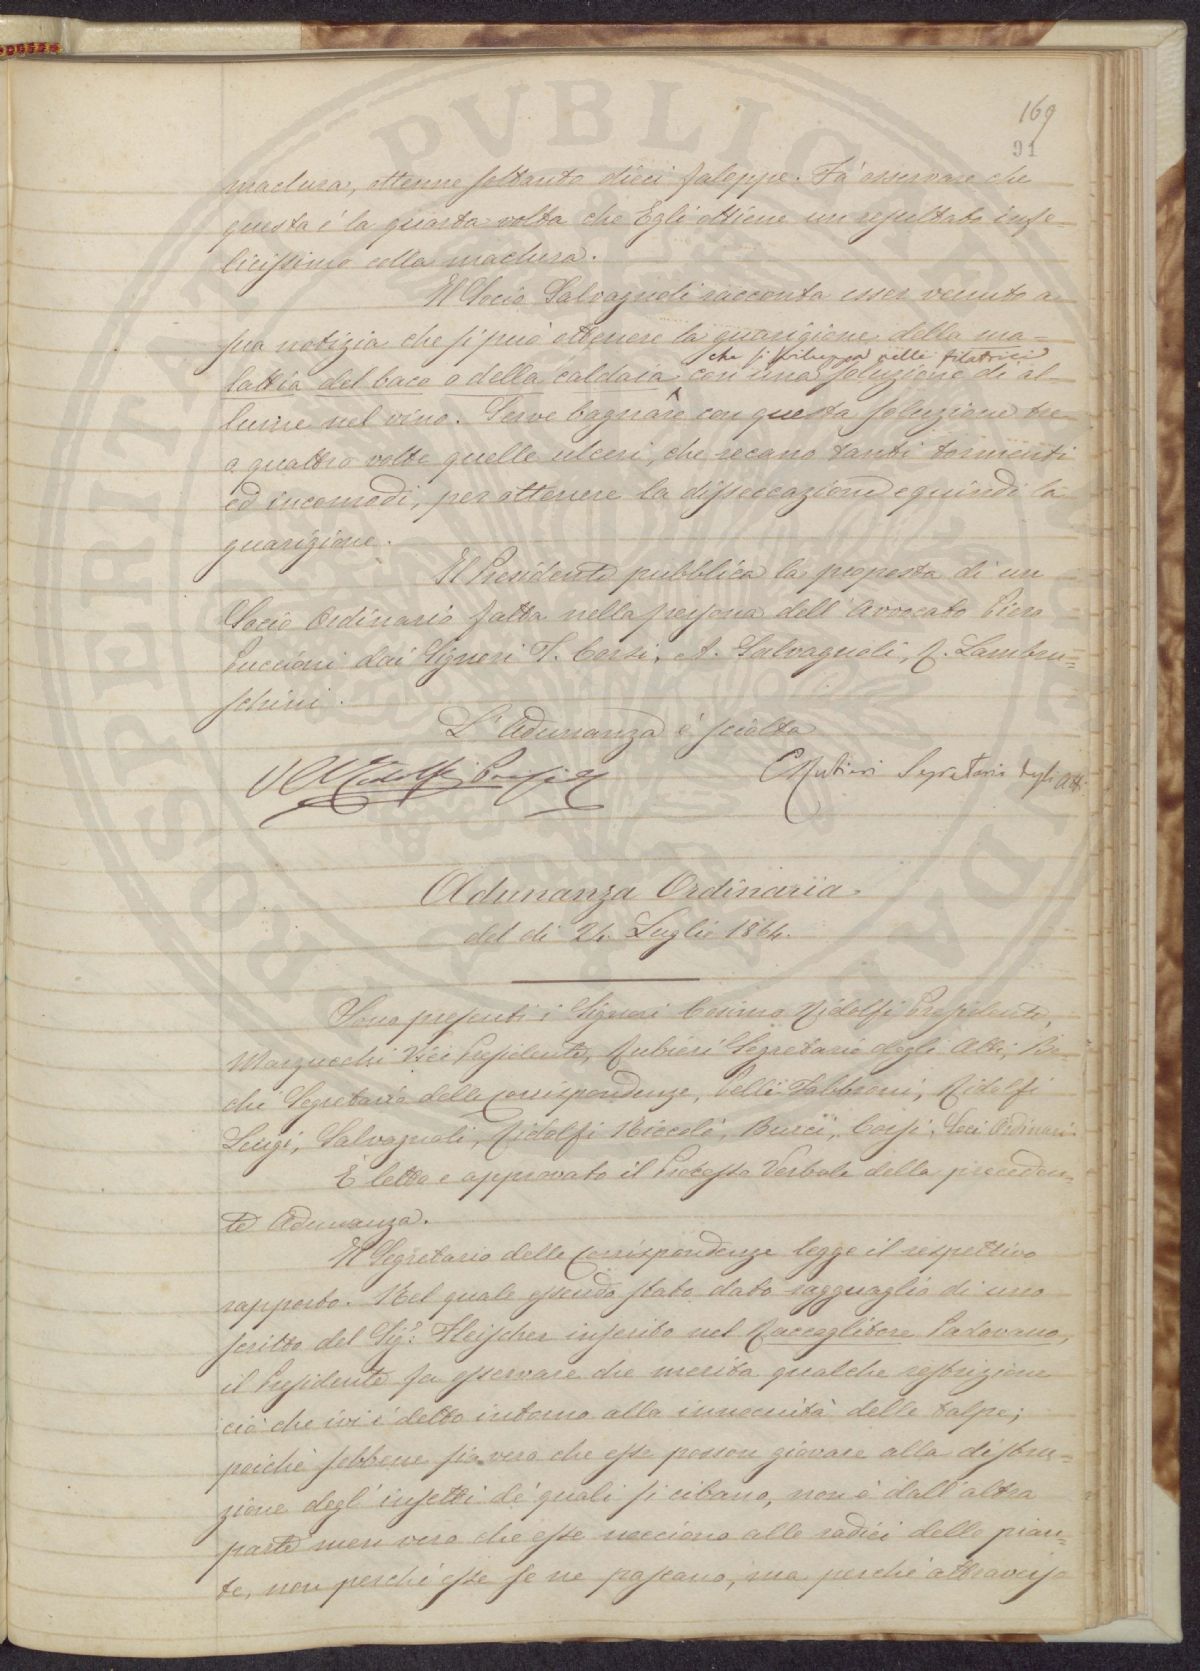 169
91
maclura, ottenne soltanto dieci faloppe. Fà osservare che
questa è la quarta volta che Egli ottiene un resultato infe-
licissimo colla maclura.
Il Socio Salvagnoli racconta esser venuto a
sua notizia che si può ottenere la guarigione della ma=
che si sviluppa nelle filatrici
lattia del baco o della caldaia con una soluzione di al-
lume nel vino. Serve bagnare con questa soluzione tre
o quattro volte quelle ulceri, che recano tanti tormenti
ed incomodi, per ottenere la disseccazione e quindi la
guarigione.
Il Presidente pubblica la proposta di un
Socio Ordinario fatta nella persona dell'Avvocato Piero
Puccioni dai Signori T. Corsi, A. Salvagnoli, R. Lambru=
schini.
L'Adunanza è sciolta
Ridolfi Presid
E Rubieri Segretario degli Atti
Adunanza Ordinaria
del di 24 Luglio 1864.
Sono presenti i Signori Cosimo Ridolfi Presidente,
Marzucchi Vice Presidente, Rubieri Segretario degli Atti, Be-
chi Segretario delle Corrispondenze, Pelli-Fabbroni, Ridolfi
Luigi, Salvagnoli, Ridolfi Niccolò, Burci, Corsi, Soci Ordinari
È letto e approvato il Processo Verbale della preceden=
te Adunanza.
Il Segretario delle Corrispondenze legge il respettivo
rapporto. Nel quale essendo stato dato ragguaglio di uno
scritto del Sig.r Fleischer inserito nel Raccoglitore Padovano,
il Presidente fa osservare che merita qualche restrizione
ciò che ivi è detto intorno alla innocuità delle talpe;
poichè sebbene sia vero che esse posson giovare alla distru=
zione degl'insetti de' quali si cibano, non è dall'altra
parte men vero che esse nocciono alle radici delle pian=
te, non perchè esse se ne pascano, ma perchè attraverso
PVBLICA
PROSPERITATI